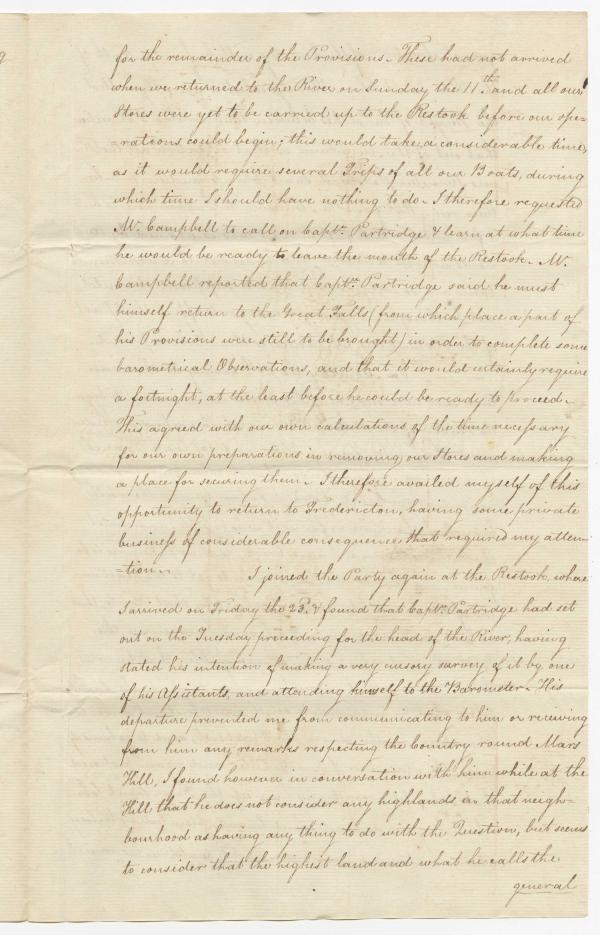 for the remainder of the Provisions. These had not arrived
when we returned to the River on Sunday the 11th. and all our
Stores were yet to be carried up to the Restook before our ope=
=rations could begin; this would take a considerable time,
as it would require several Trips of all our Boats, during
which time I should have nothing to do. I therefore requested
Mr. Campbell to call on Captn. Partridge & learn at what time
he would be ready to leave the mouth of the Restook. Mr.
Campbell reported that Captn. Partridge said he must
himself return to the Great Falls (from which place a part of
his Provisions were still to be brought) in order to complete some
barometrical Observations, and that it would certainly require
a fortnight, at the least before he could be ready to proceed.
This agreed with our own calculations of the time necessary
for our own preparations in removing our Stores and making
a place for securing them. I therefore availed myself of this
opportunity to return to Fredericton, having some private
business of considerable consequence that required my atten=
=tion.
I joined the Party again at the Restook, where
I arrived on Friday the 23d. & found that Captn. Partridge had set
out on the Tuesday preceeding for the head of the River, having
stated his intention of making a very cursory survey of it by one
of his Assistants, and attending himself to the Barometer. His
departure prevented me from communicating to him or receiving
from him any remarks respecting the Country round Mars
Hill, I found however in conversation with him while at the
Hill that he does not consider any highlands in that neigh=
bourhood as having any thing to do with the Question, but seems
to consider that the highest land and what he calls the
general